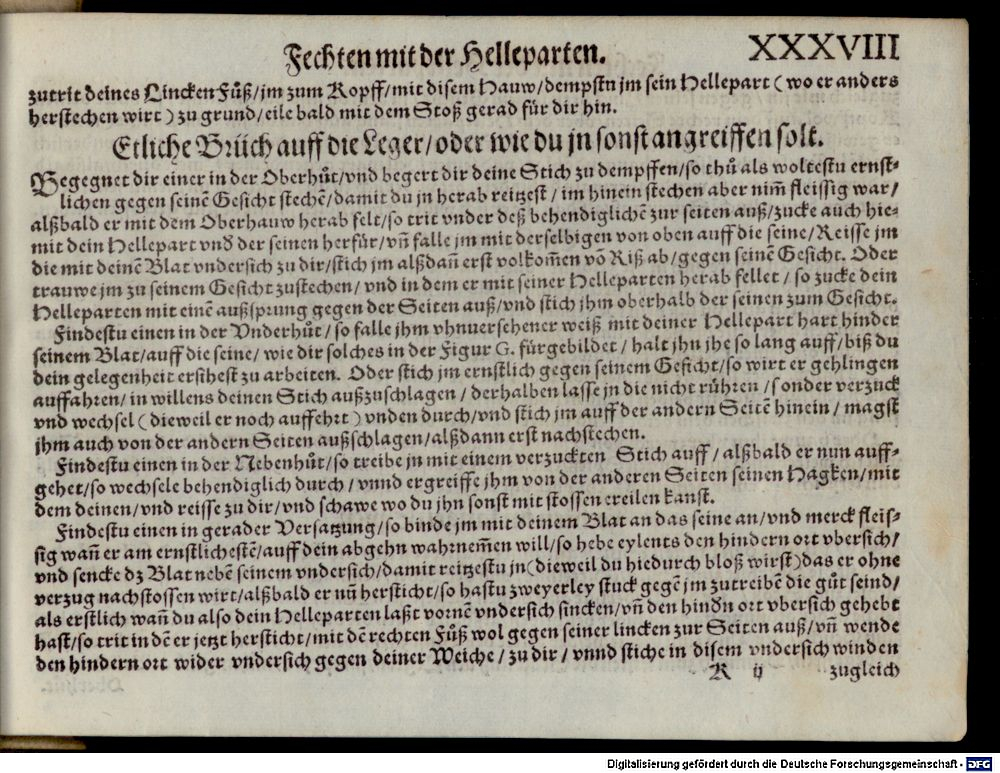 Fechten mit der Helleparten. XXXVIII
zutrit deines Lincken Fůß/jm zum Kopff/mit disem Hauw/dempstu jm sein Hellepart (wo er anders
herstechen wirt) zu grund/eile bald mit dem Stoß gerad für dir hin.
Etliche Brüch auff die Leger/oder wie du jn sonst angreiffen solt.
Begegnet dir einer in der Oberhůt/vnd begert dir deine Stich zu dempffen/so thů als woltestu ernst-
lichen gegen seinē Gesicht stechē/damit du jn herab reitzest/im hinein stechen aber nim̄ fleissig war/
alßbald er mit dem Oberhauw herab felt/so trit vnder deß behendiglichē zur seiten auß/zucke auch hie-
mit dein Hellepart vnd der seinen herfür/vn̄ falle jm mit derselbigen von oben auff die seine/Reisse jm
die mit deinē Blat vndersich zu dir/stich jm alßdan̄ erst volkom̄en vō Riß ab/gegen seinē Gesicht. Oder
trauwe jm zu seinem Gesicht zustechen/vnd in dem er mit seiner Helleparten herab fellet/so zucke dein
Helleparten mit einē außsprung gegen der Seiten auß/vnd stich jhm oberhalb der seinen zum Gesicht.
Findestu einen in der Vnderhůt/so falle jhm vhnuersehener weiß mit deiner Hellepart hart hinder
seinem Blat/auff die seine/wie dir solches in der Figur G. fürgebildet/halt jhn jhe so lang auff/biß du
dein gelegenheit ersihest zu arbeiten. Oder stich jm ernstlich gegen seinem Gesicht/so wirt er gehlingen
auffahren/in willens deinen Stich außzuschlagen/derhalben lasse jn die nicht rühren/sonder verzuck
vnd wechsel (dieweil er noch auffehrt) vnden durch/vnd stich jm auff der andern Seitē hinein/magst
jhm auch von der andern Seiten außschlagen/alßdann erst nachstechen.
Findestu einen in der Nebenhůt/so treibe jn mit einem verzuckten Stich auff/alßbald er nun auff-
gehet/so wechsele behendiglich durch/vnnd ergreiffe jhm von der anderen Seiten seinen Hagken/mit
dem deinen/vnd reisse zu dir/vnd schawe wo du jhn sonst mit stossen ereilen kanst.
Findestu einen in gerader Versatzung/so binde jm mit deinem Blat an das seine an/vnd merck fleis-
sig wan̄ er am ernstlichestē/auff dein abgehn wahrnem̄en will/so hebe eylents den hindern ort vbersich/
vnd sencke dz Blat nebē seinem vndersich/damit reitzestu jn (dieweil du hiedurch bloß wirst) das er ohne
verzug nachstossen wirt/alßbald er nun̄ hersticht/so hastu zweyerley stuck gegē jm zutreibē die gůt seind/
als erstlich wan̄ du also dein Helleparten laßt vornē vndersich sincken/vn̄ den hindn ort vbersich gehebt
hast/so trit in dē er jetzt hersticht/mit dē rechten Fůß wol gegen seiner lincken zur Seiten auß/vn̄ wende
den hindern ort wider vndersich gegen deiner Weiche/zu dir/vnnd stiche in disem vndersich winden
K ij zugleich
Digitalisierung gefördert durch die Deutsche Forschungsgemeinschaft - DFG